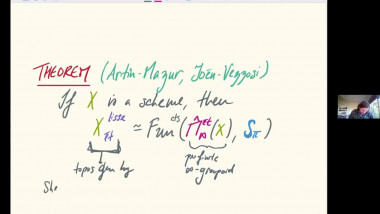 THEOREM (Artin-Mazur, Toën-Vezzosi)
If X is a scheme, then
X lisse ét ≃ Fun cts (Π̂ ét ∞ (X), S π)
topos gen by
profinite
∞-groupoid
She